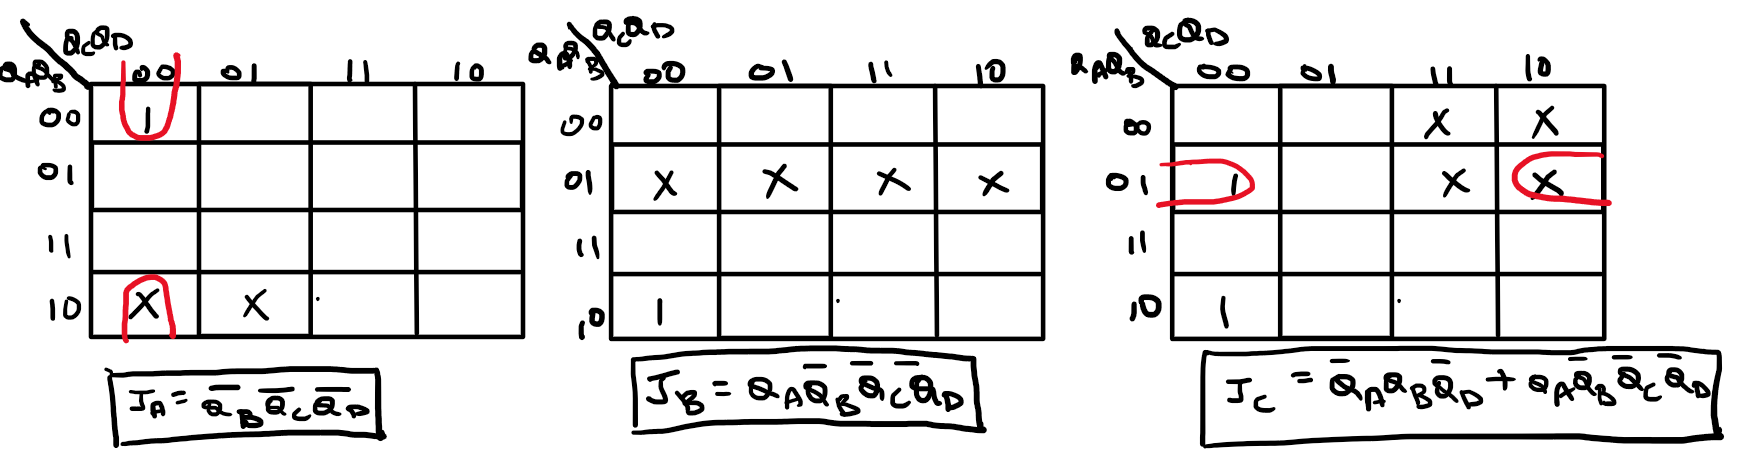 Q_CQ_D
Q_AQ_B
00 01 11 10
00 1
01
11
10 X X
J_A = Q̅_B Q̅_C Q̅_D
Q_CQ_D
Q_AQ_B
00 01 11 10
00
01 X X X X
11
10 1
J_B = Q_A Q̅_B Q̅_C Q̅_D
Q_CQ_D
Q_AQ_B
00 01 11 10
00 X X
01 1 X X
11
10 1
J_C = Q̅_A Q_B Q̅_D + Q_A Q̅_B Q̅_C Q̅_D